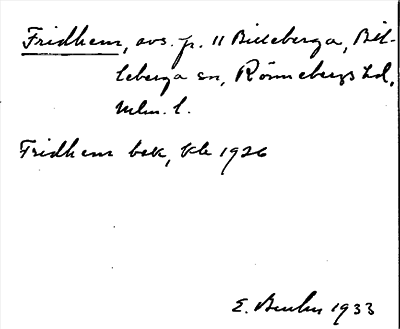 Fridhem, avs. fr. 11 Billeberga, Bil-
leberga sn, Rönnebergs hd,
Mlm. l.
Fridhem bek, kbr 1926
E. 1933